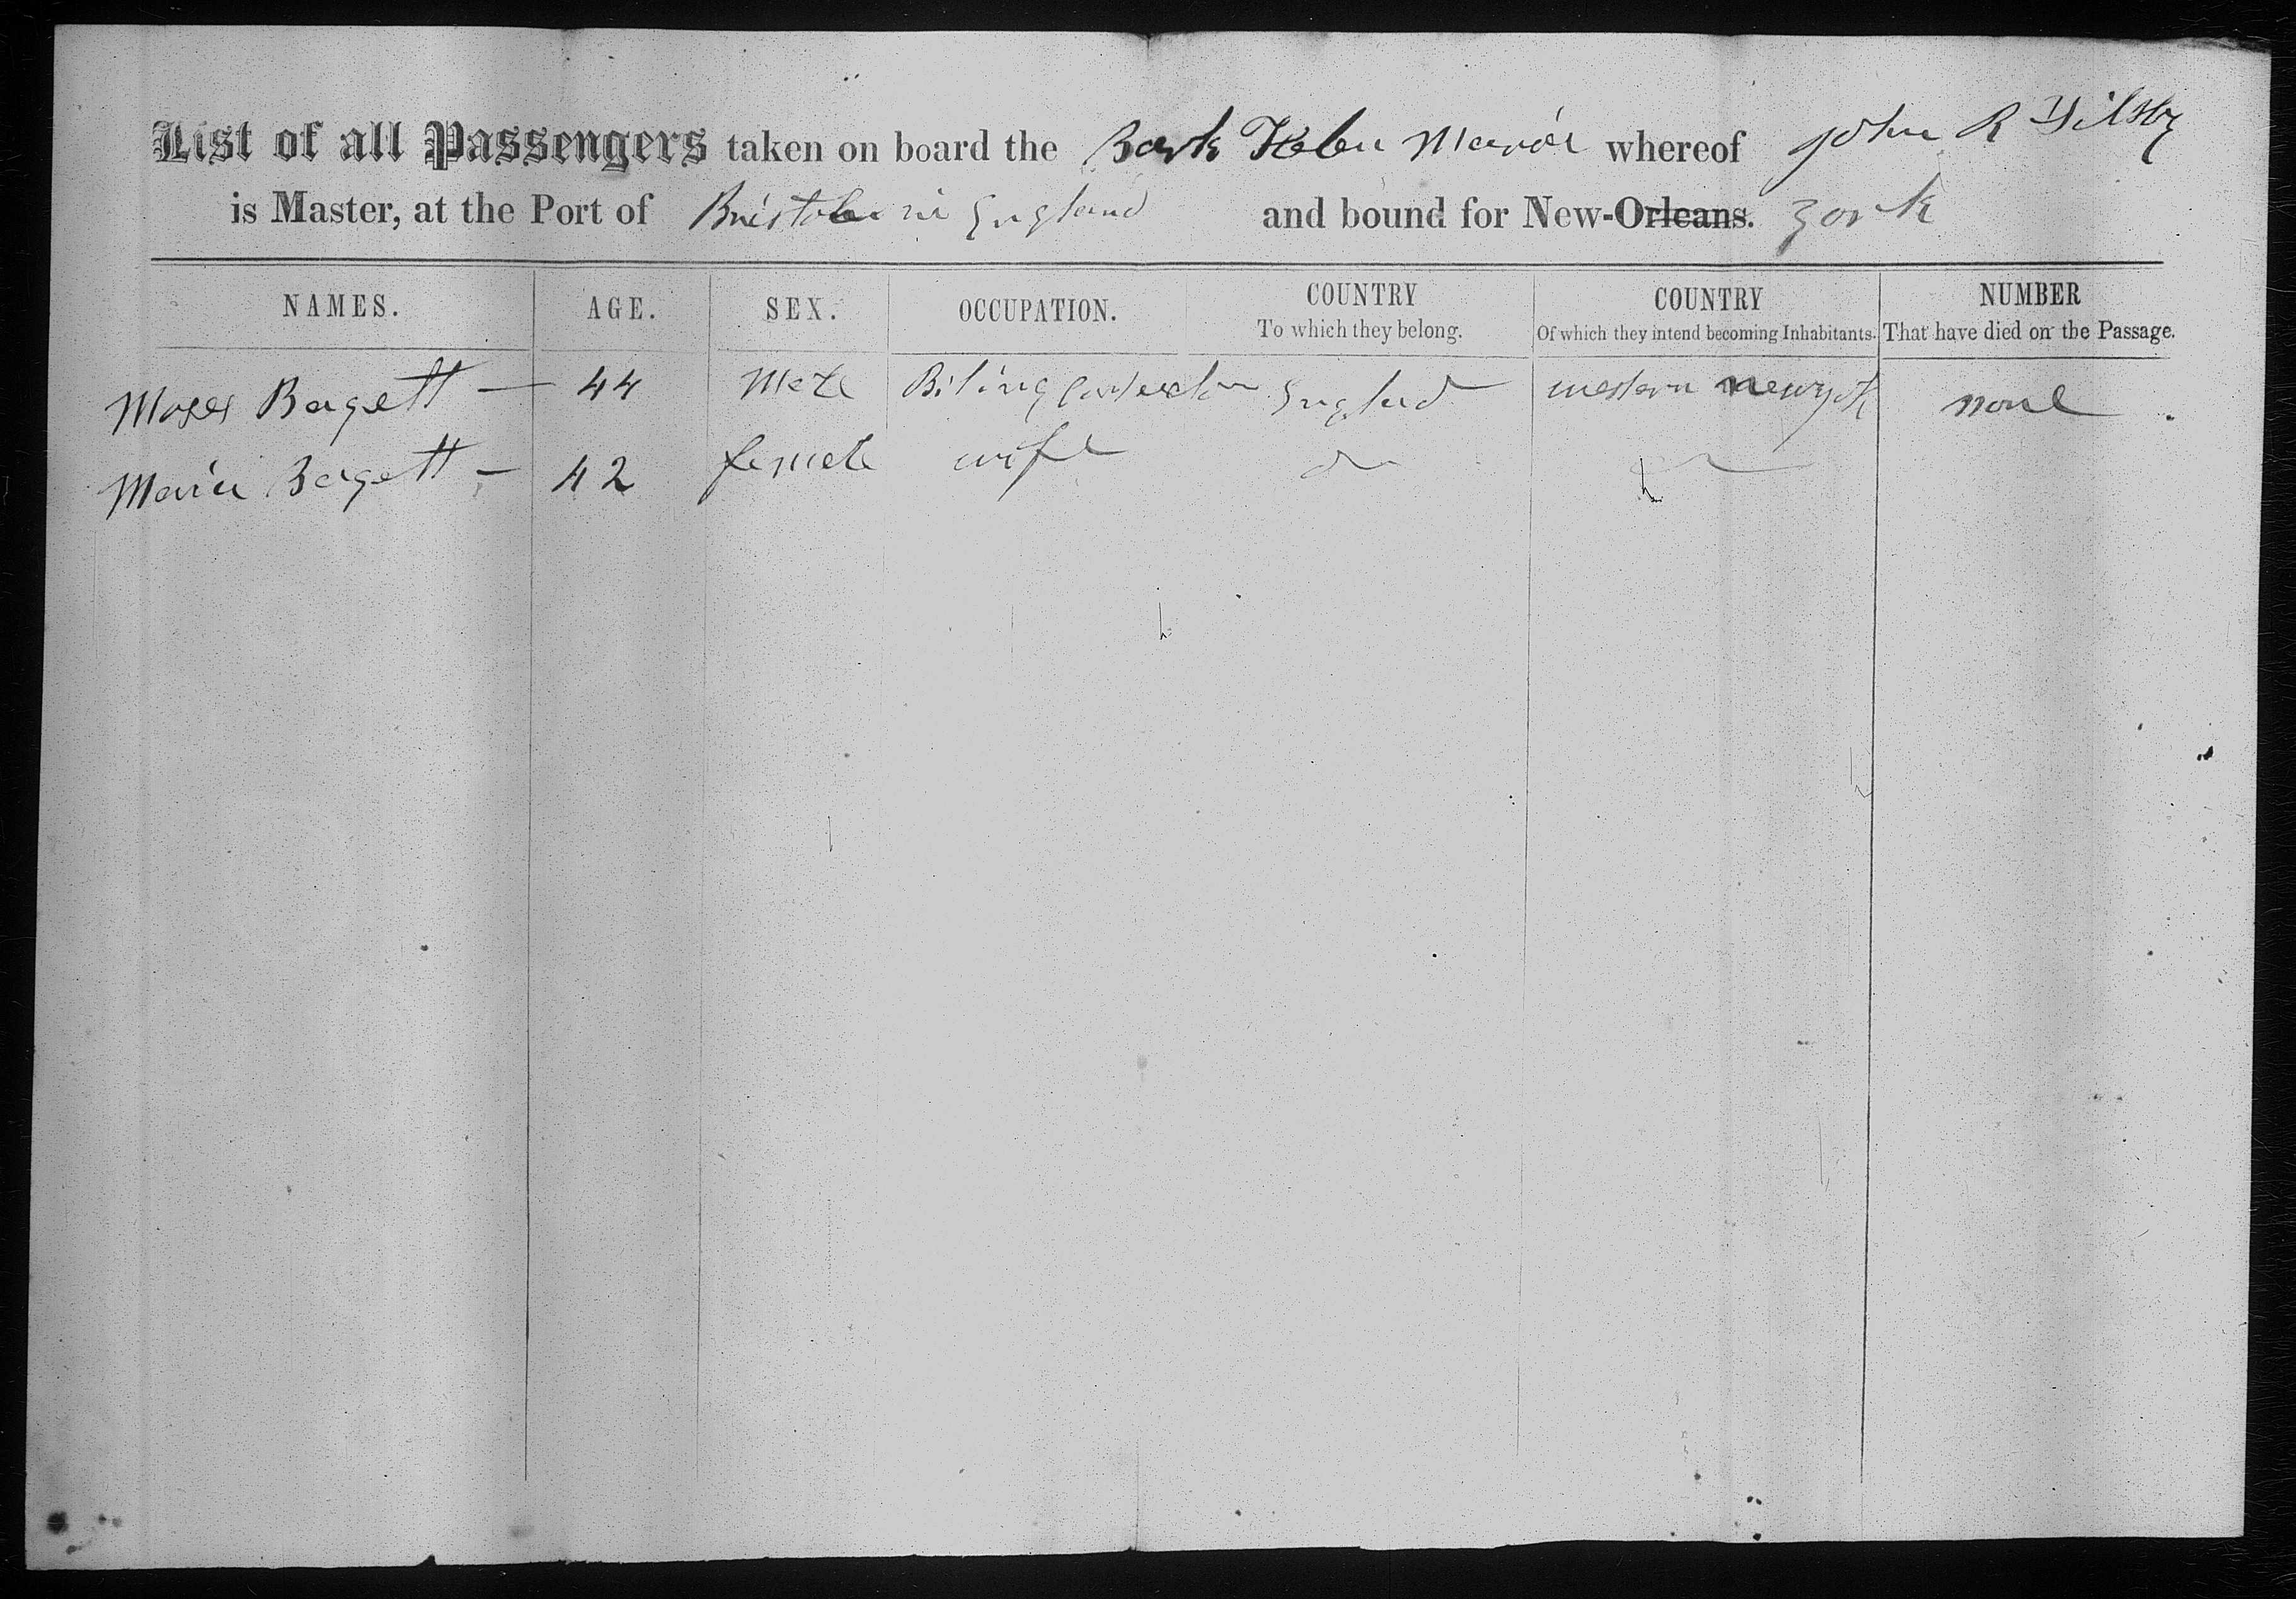 List of all Passengers taken on board the Bark Helen Maria whereof John R
is Master, at the Port of Bristol in England and bound for New-Orleans. York
NAMES. AGE. SEX. OCCUPATION. COUNTRY To which they belong. COUNTRY Of which they intend becoming Inhabitants. NUMBER That have died on the Passage.
Moses Bagett — 44 Male England western newyork none
Maria Bagett — 42 female wife do do